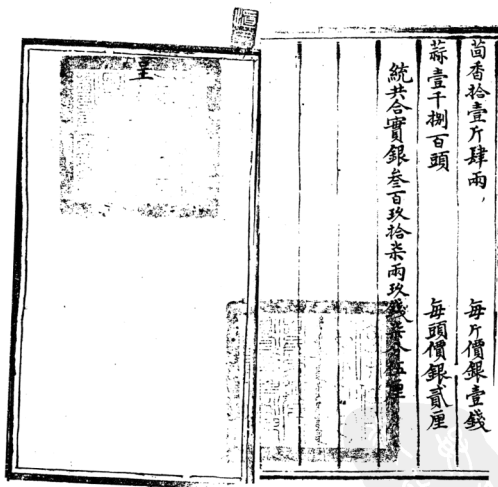 茴香拾壹斤肆兩，每斤價銀壹錢
蒜壹千捌百頭 每頭價銀貳厘
統共合實銀叁百玖拾柒兩玖錢柒分伍厘
呈